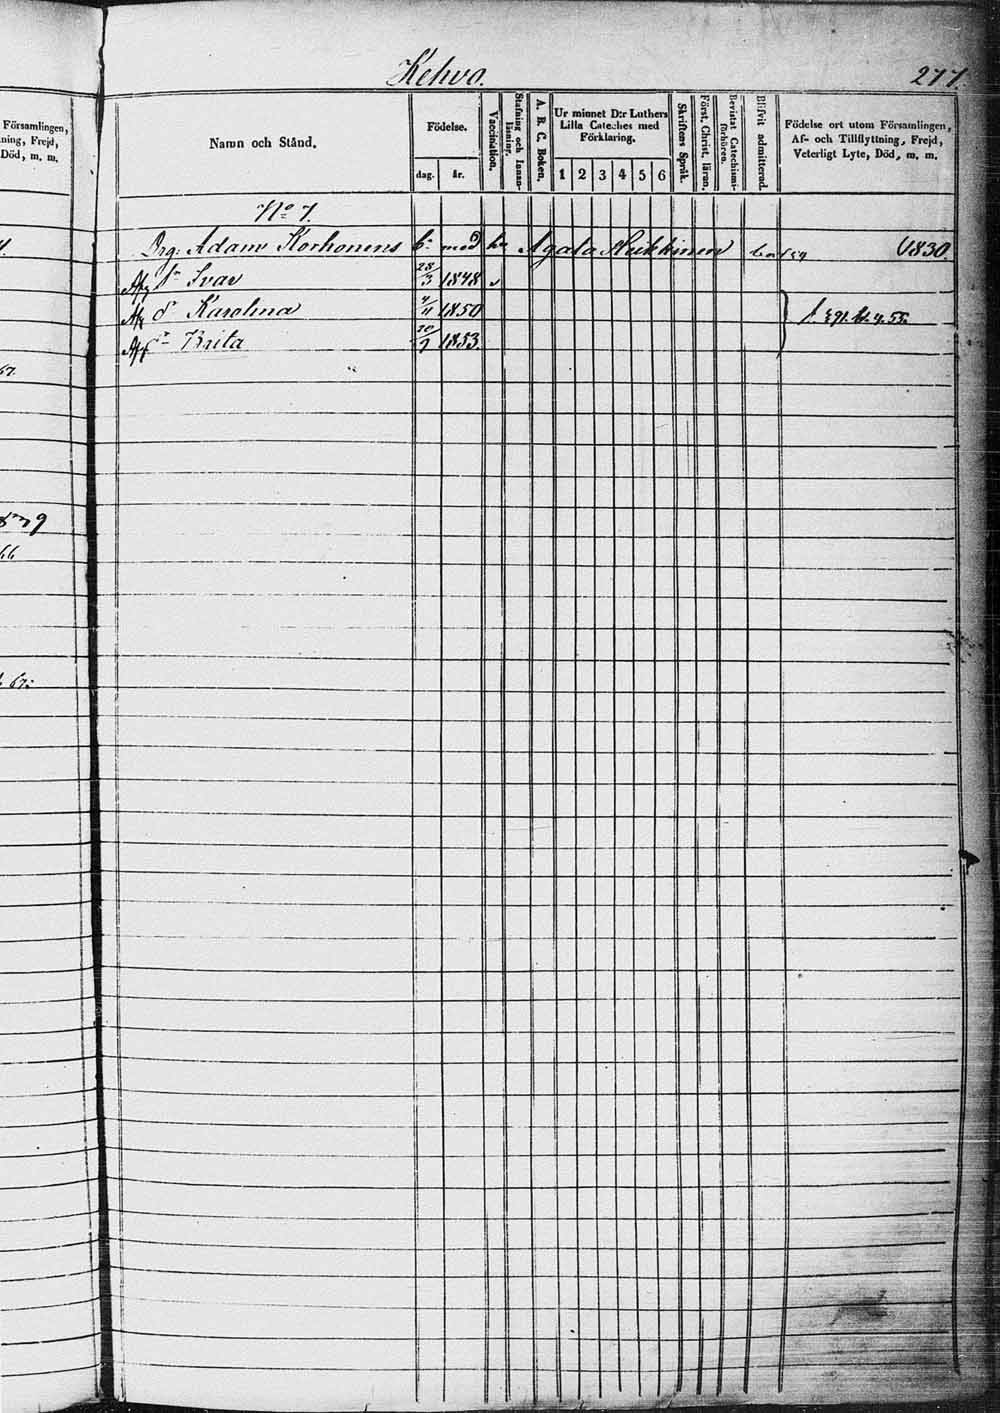 Kehvo.
277.
Församlingen,
ning, Frejd,
Död, m. m.
Namn och Stånd.
Födelse.
dag. år.
Vaccination.
Stafning och Innan-
läsning.
A. B. C. Boken.
Ur minnet D:r Luthers
Lilla Cateches med
Förklaring.
1 2 3 4 5 6
Skriftens Språk.
Först. Christ. läran.
Bevistat Catechismi-
förhören.
Blifvit admitterad.
Födelse ort utom Församlingen,
Af- och Tillflyttning, Frejd,
Veterligt Lyte, Död, m. m.
No 7.
Drg: Adam Korhonens b: med Agata Heikkinen 1830
Sn Ivar 28/3 1848 v
dr Karolina 4/11 1850
dr Brita 20/7 1853
67.
67: